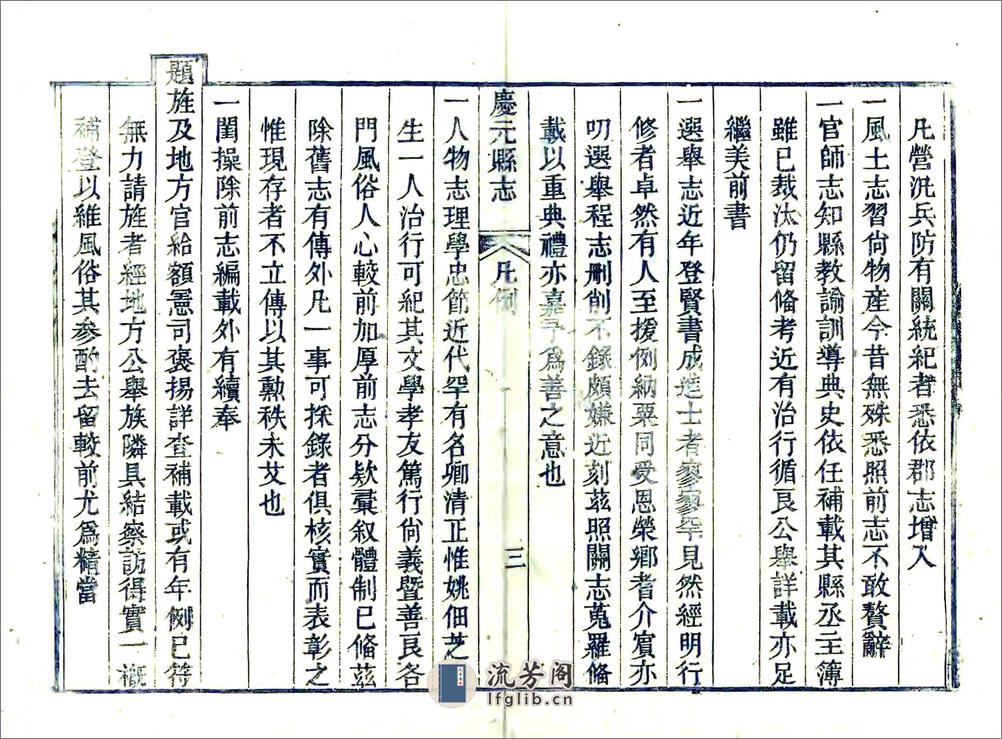 凡營汛兵防有關統紀者悉依郡志增入
一風土志習尙物産今昔無殊悉照前志不敢贅辭
一官師志知縣教諭訓導典史依任補載其縣丞主簿
雖已裁汰仍留俻考近有治行循良公舉詳載亦足
繼美前書
一選舉志近年登賢書成進士者寥寥罕見然經明行
修者卓然有人至援例納粟同受恩榮鄉耆介賔亦
叨選舉程志刪削不錄頗嫌近刻茲照關志蒐羅俻
載以重典禮亦嘉予爲善之意也
慶元縣志
凡例
三
一人物志理學忠節近代罕有名卿清正惟姚佃芝
生一人治行可紀其文學孝友篤行尙義暨善良各
門風俗人心較前加厚前志分欵彚叙體制已俻茲
除舊志有傳外凡一事可採錄者俱核實而表彰之
惟現存者不立傳以其勳秩未艾也
一閨操除前志編載外有續奉
題旌及地方官給額憲司褒揚詳查補載或有年例已符
無力請旌者經地方公舉族隣具結察訪得實一槪
補登以維風俗其參酌去留較前尤爲精當
流芳阁
lfglib.cn